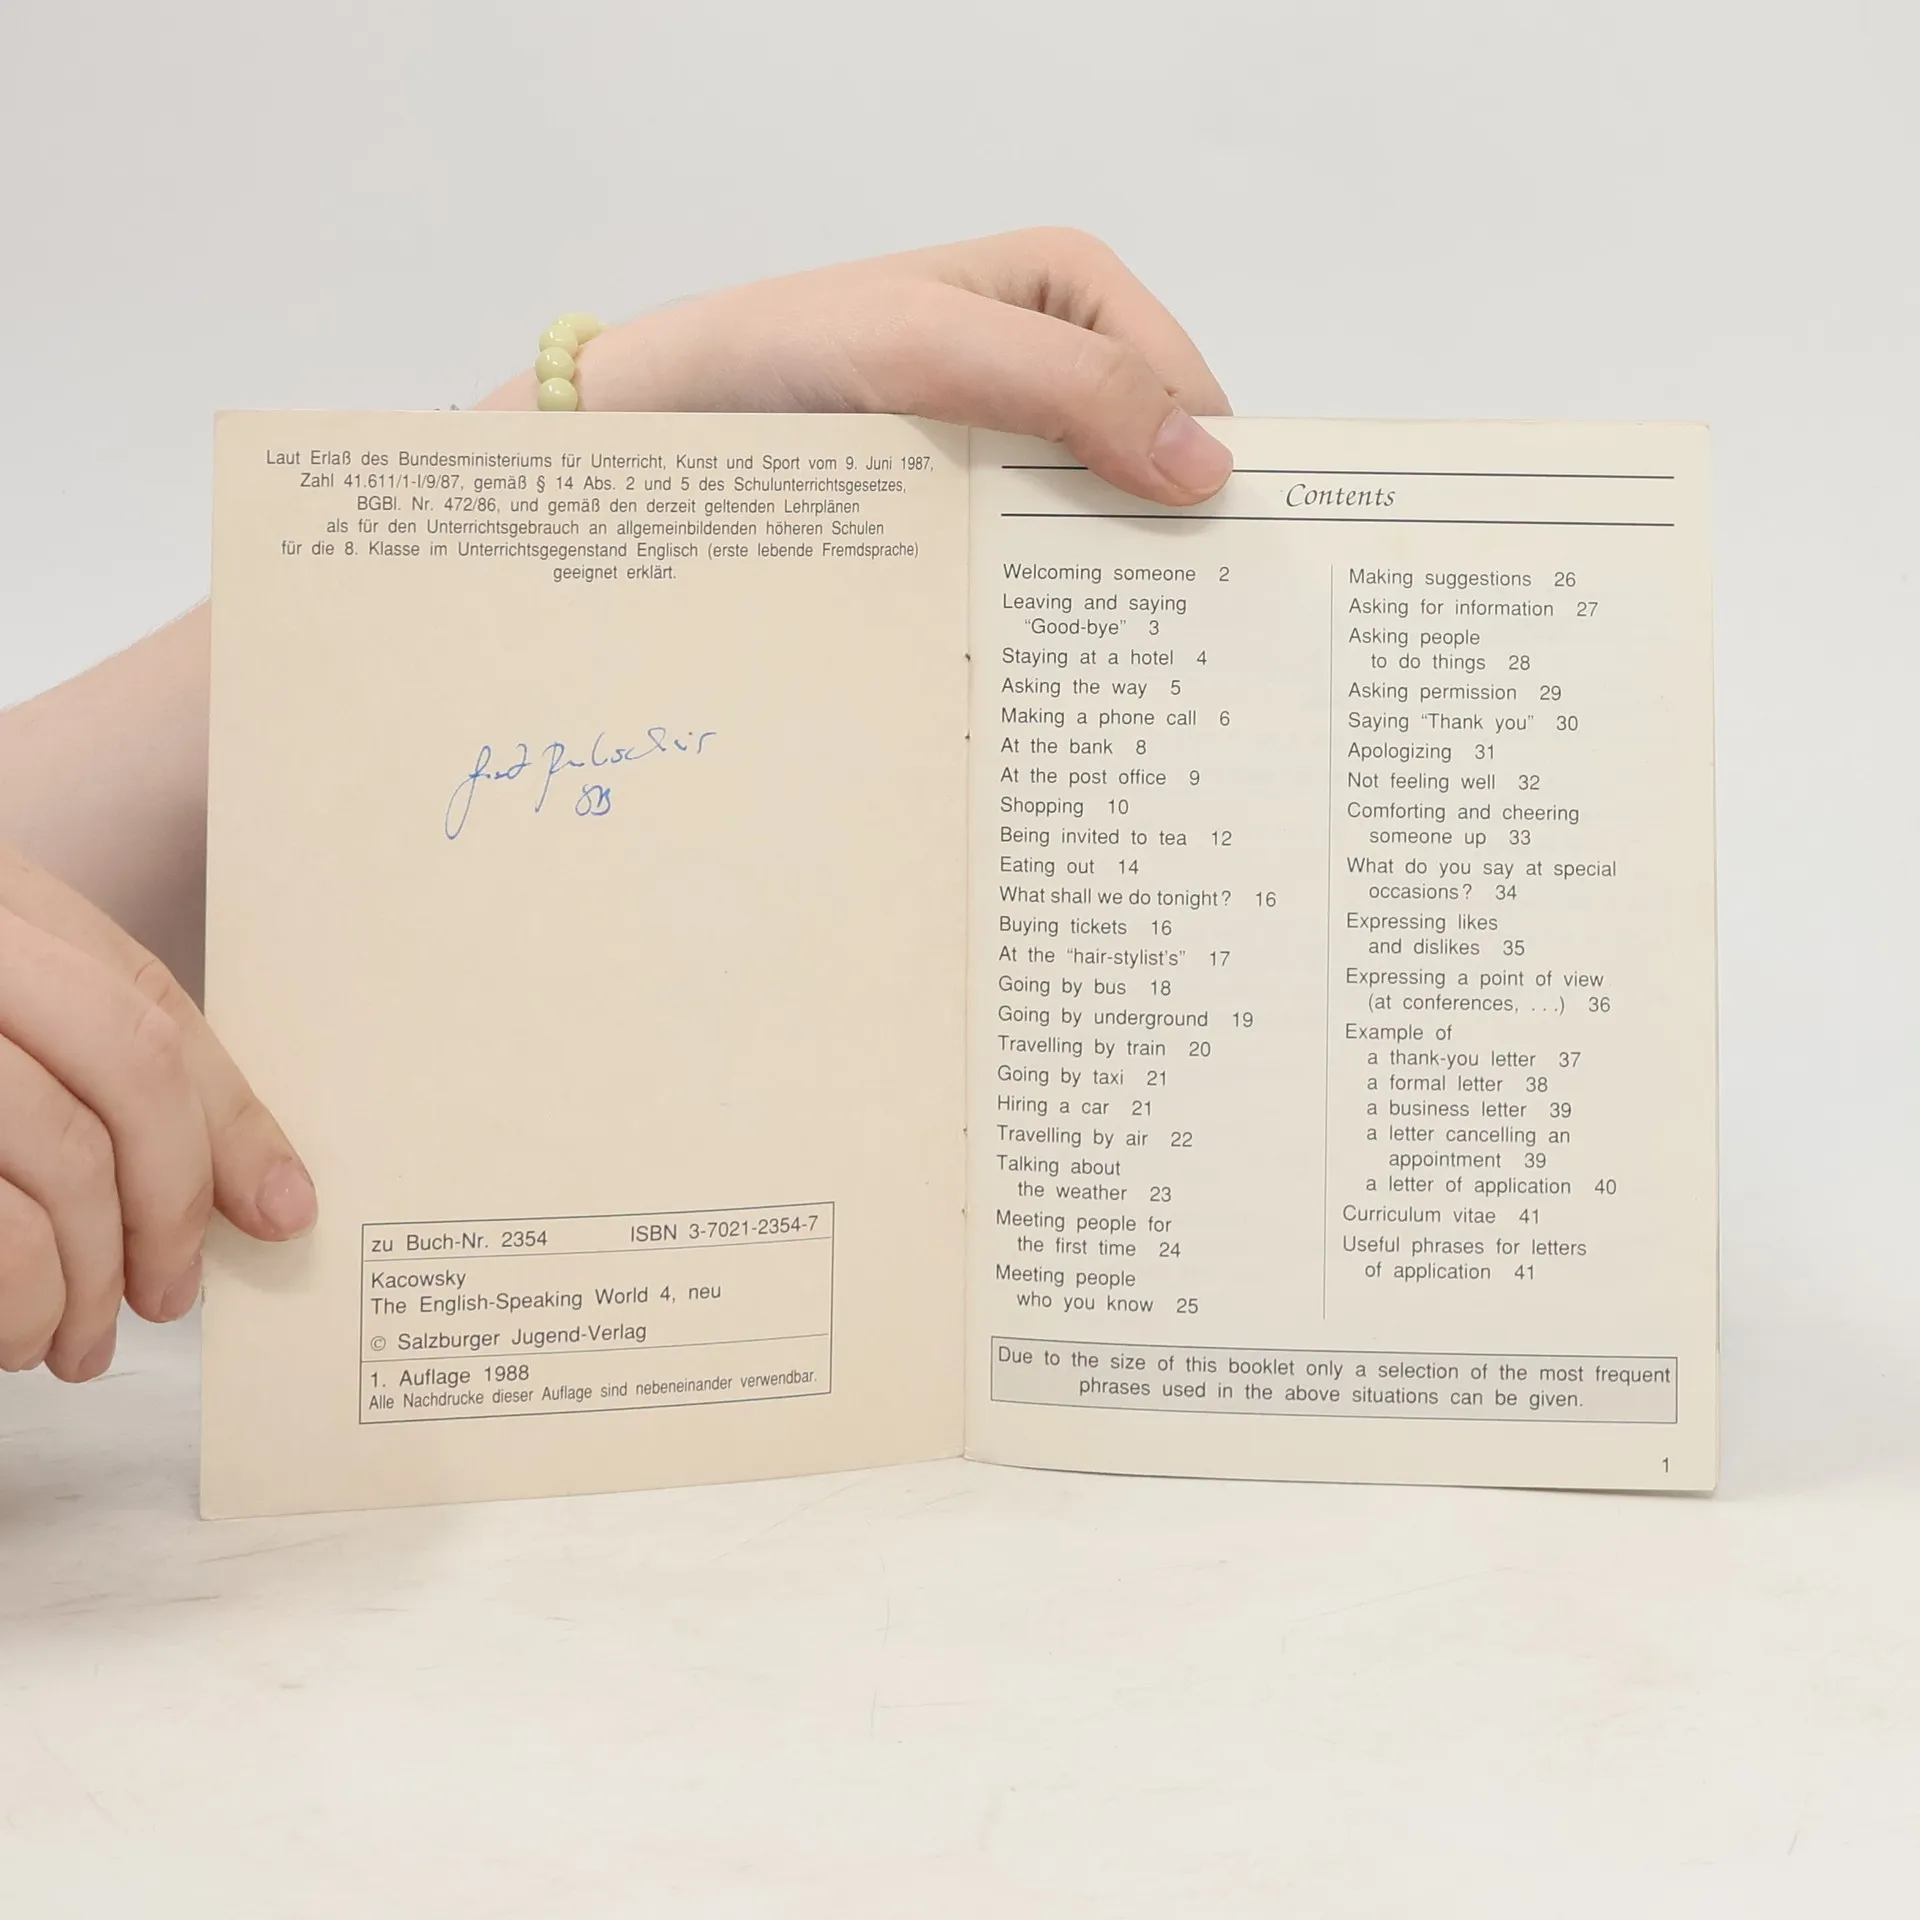 Laut Erlaß des Bundesministeriums für Unterricht, Kunst und Sport vom 9. Juni 1987,
Zahl 41.611/1-I/9/87, gemäß § 14 Abs. 2 und 5 des Schulunterrichtsgesetzes,
BGBl. Nr. 472/86, und gemäß den derzeit geltenden Lehrplänen
als für den Unterrichtsgebrauch an allgemeinbildenden höheren Schulen
für die 8. Klasse im Unterrichtsgegenstand Englisch (erste lebende Fremdsprache)
geeignet erklärt.
8B
zu Buch-Nr. 2354 ISBN 3-7021-2354-7
Kacowsky
The English-Speaking World 4, neu
© Salzburger Jugend-Verlag
1. Auflage 1988
Alle Nachdrucke dieser Auflage sind nebeneinander verwendbar.
Contents
Welcoming someone 2
Leaving and saying
"Good-bye" 3
Staying at a hotel 4
Asking the way 5
Making a phone call 6
At the bank 8
At the post office 9
Shopping 10
Being invited to tea 12
Eating out 14
What shall we do tonight? 16
Buying tickets 16
At the "hair-stylist's" 17
Going by bus 18
Going by underground 19
Travelling by train 20
Going by taxi 21
Hiring a car 21
Travelling by air 22
Talking about
the weather 23
Meeting people for
the first time 24
Meeting people
who you know 25
Making suggestions 26
Asking for information 27
Asking people
to do things 28
Asking permission 29
Saying "Thank you" 30
Apologizing 31
Not feeling well 32
Comforting and cheering
someone up 33
What do you say at special
occasions? 34
Expressing likes
and dislikes 35
Expressing a point of view
(at conferences, . . .) 36
Example of
a thank-you letter 37
a formal letter 38
a business letter 39
a letter cancelling an
appointment 39
a letter of application 40
Curriculum vitae 41
Useful phrases for letters
of application 41
Due to the size of this booklet only a selection of the most frequent
phrases used in the above situations can be given.
1